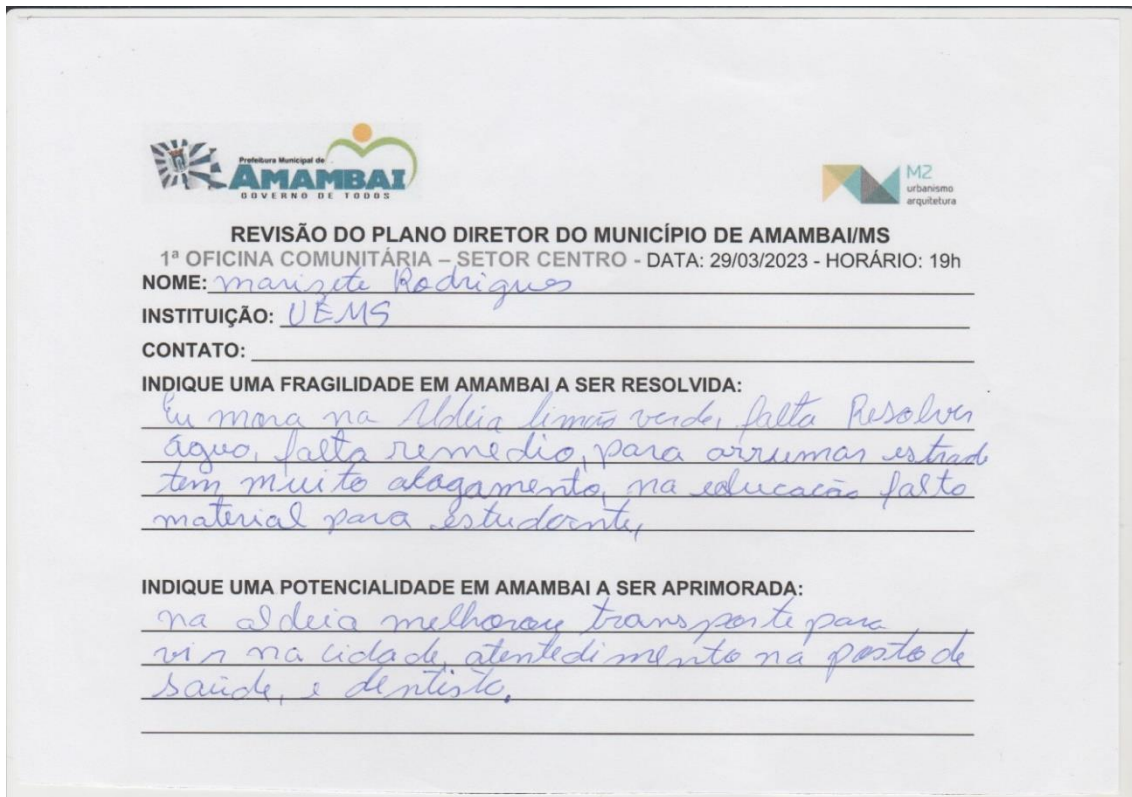 Prefeitura Municipal de
AMAMBAI
GOVERNO DE TODOS
M2
urbanismo
arquitetura
REVISÃO DO PLANO DIRETOR DO MUNICÍPIO DE AMAMBAI/MS
1ª OFICINA COMUNITÁRIA – SETOR CENTRO - DATA: 29/03/2023 - HORÁRIO: 19h
NOME: marizete Rodrigues
INSTITUIÇÃO: UEMS
CONTATO:
INDIQUE UMA FRAGILIDADE EM AMAMBAI A SER RESOLVIDA:
Eu mora na Aldeia limão verde, falta Resolver
água, falta remédio, para arrumar estrade
tem muito alagamento, na educação falto
material para estudante,
INDIQUE UMA POTENCIALIDADE EM AMAMBAI A SER APRIMORADA:
na aldeia melhorou transporte para
vir na cidade, atentedimento na posto de
saúde, e dentisto.